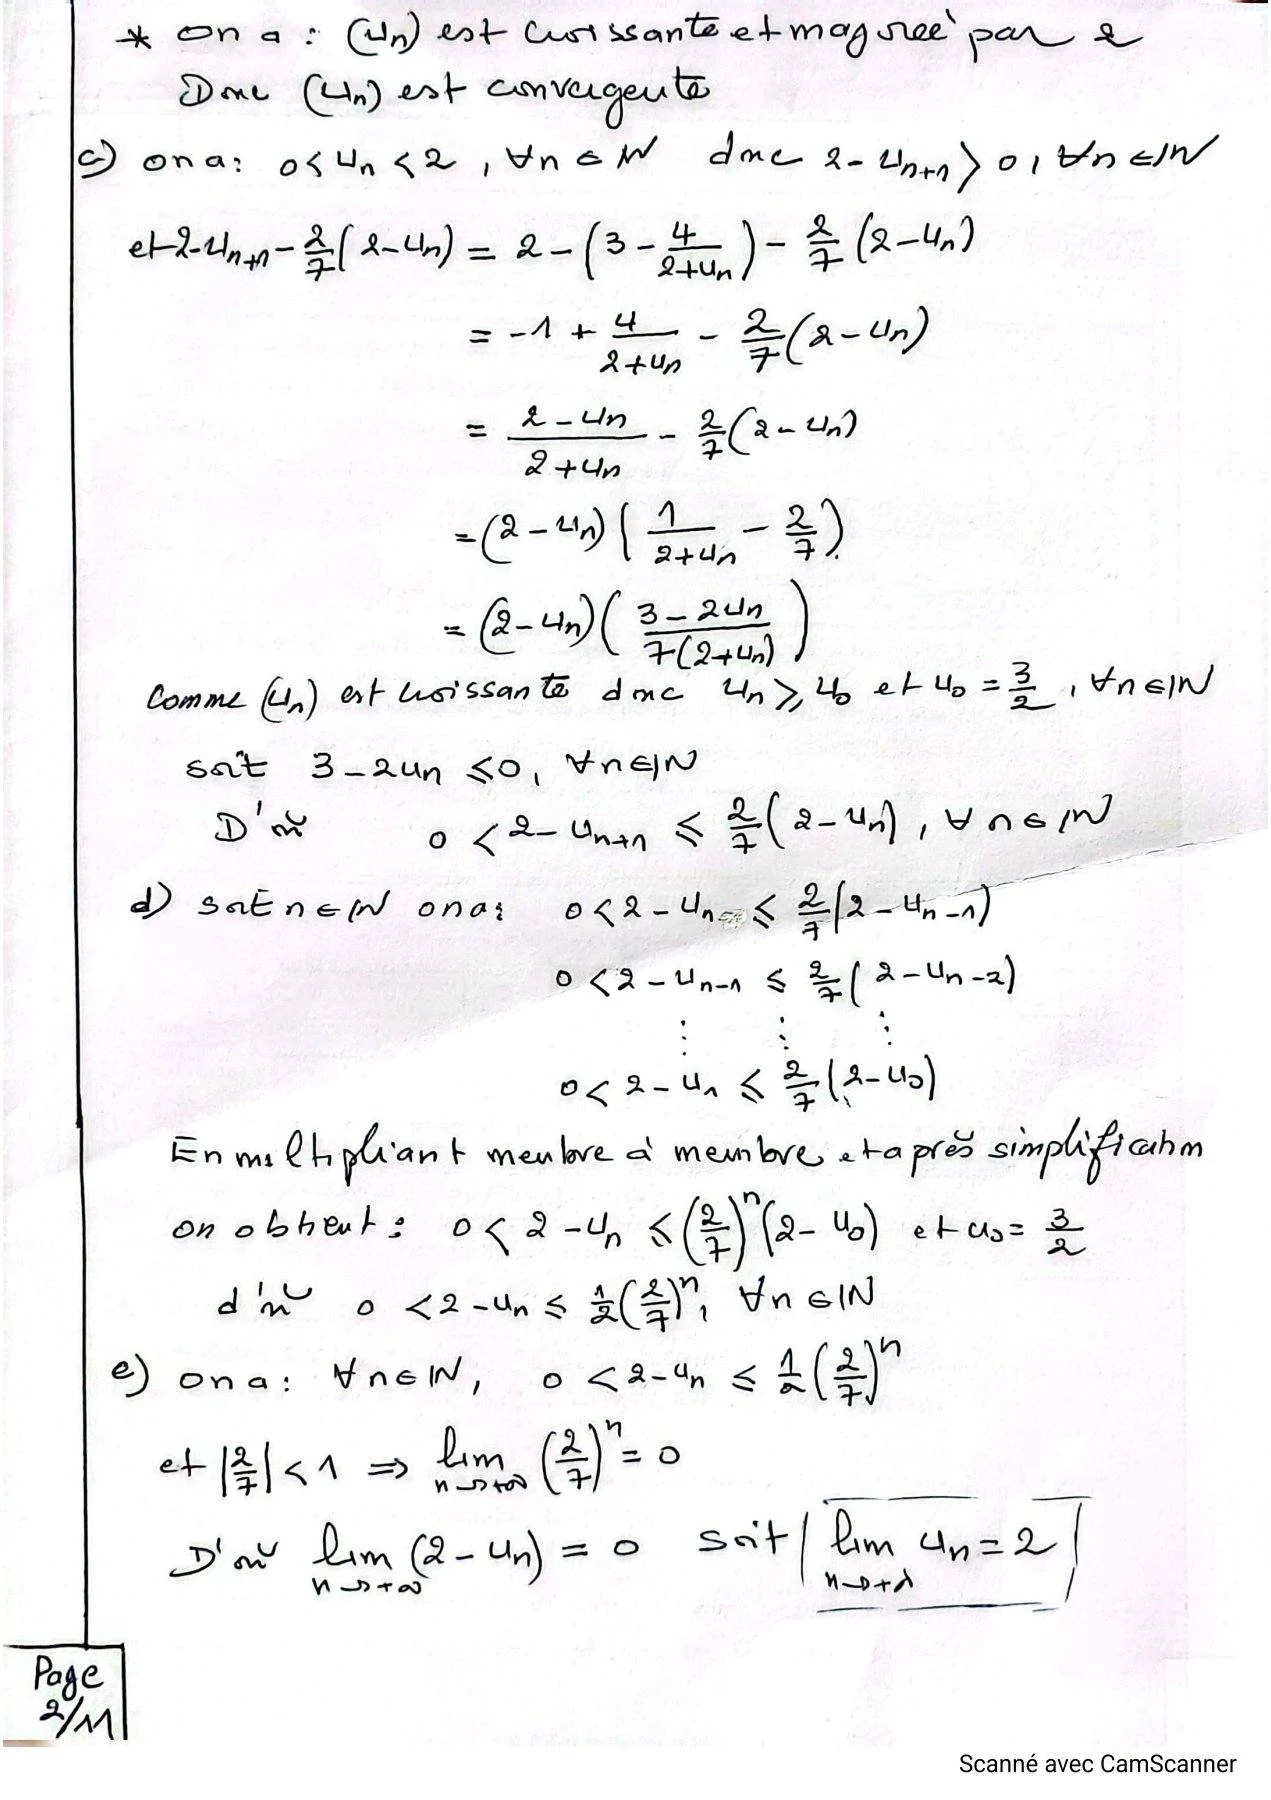 * on a : (Un) est croissante et majorée par 2
Donc (Un) est convergente
c) on a : 0 < Un < 2 , ∀n ∈ IN donc 2 - Un+1 > 0 , ∀n ∈ IN
et 2 - Un+1 - 2/7 (2 - Un) = 2 - (3 - 4/(2+Un)) - 2/7 (2 - Un)
= -1 + 4/(2+Un) - 2/7 (2 - Un)
= (2 - Un)/(2 + Un) - 2/7 (2 - Un)
= (2 - Un) (1/(2+Un) - 2/7)
= (2 - Un) ((3 - 2Un)/(7(2+Un)))
Comme (Un) est croissante donc Un ≥ U0 et U0 = 3/2 , ∀n ∈ IN
soit 3 - 2Un ≤ 0 , ∀n ∈ IN
D'où 0 < 2 - Un+1 ≤ 2/7 (2 - Un) , ∀n ∈ IN
d) soit n ∈ IN on a : 0 < 2 - Un ≤ 2/7 (2 - Un-1)
0 < 2 - Un-1 ≤ 2/7 (2 - Un-2)
⋮ ⋮ ⋮
0 < 2 - U1 ≤ 2/7 (2 - U0)
En multipliant membre à membre et après simplification
on obtient : 0 < 2 - Un ≤ (2/7)^n (2 - U0) et U0 = 3/2
d'où 0 < 2 - Un ≤ 1/2 (2/7)^n , ∀n ∈ IN
e) on a : ∀n ∈ IN, 0 < 2 - Un ≤ 1/2 (2/7)^n
et |2/7| < 1 ⇒ lim n→+∞ (2/7)^n = 0
D'où lim n→+∞ (2 - Un) = 0 soit lim n→+∞ Un = 2
Page
2/11
Scanné avec CamScanner